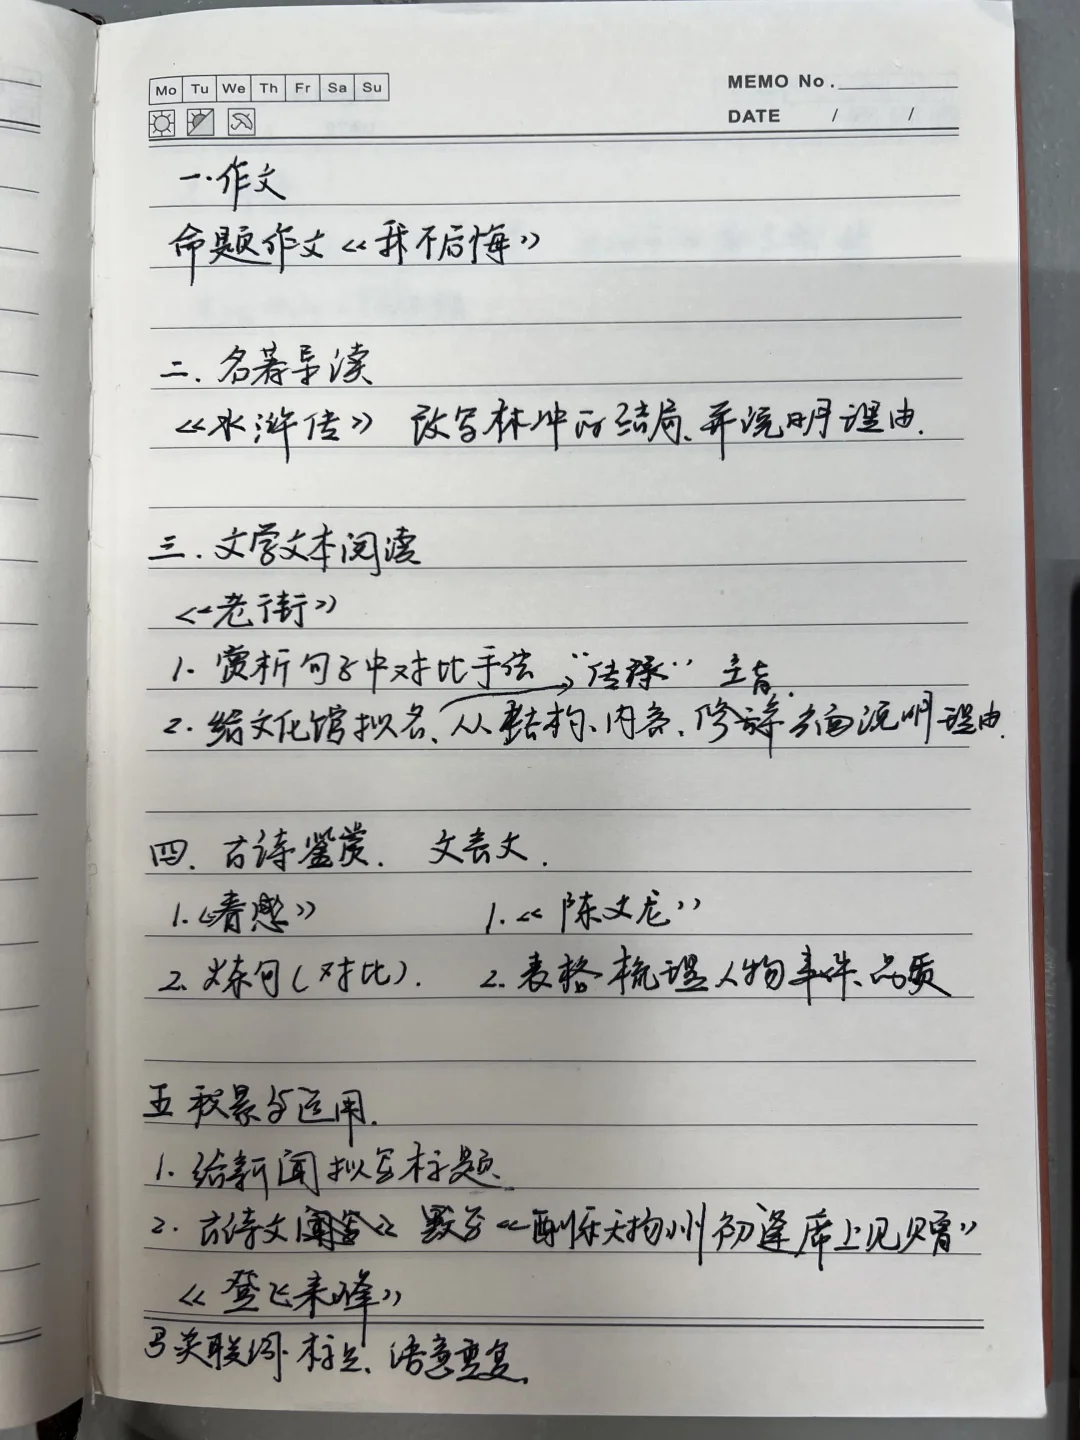 Mo Tu We Th Fr Sa Su
MEMO No.
DATE / /
一.作文
命题作文《我不后悔》
二.名著导读
《水浒传》 改写林冲的结局、并说明理由.
三.文学文本阅读
《老街》
1.赏析句子中对比手法 "传承" 主旨.
2.给文化馆拟名、从结构、内容、修辞方面说明理由.
四.古诗鉴赏. 文言文.
1.《春愁》 1.《陈文龙》
2.炼句(对比). 2.表格梳理人物事件、品质
五 积累与运用.
1.给新闻拟写标题.
2.古诗文 默写《酬乐天扬州初逢席上见赠》
《登飞来峰》
3 关联词.标点、语意重复.